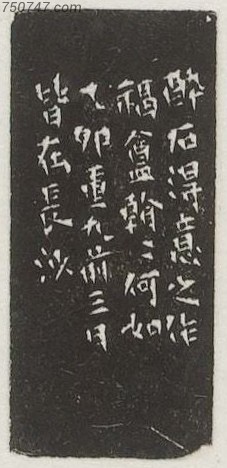 750747.com
醉后得意之作
福盦翰〻何如
乙卯重九前三日
皆在長沙